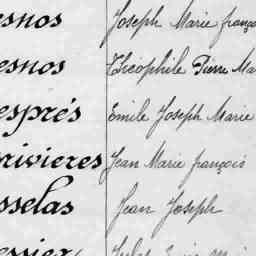 esnos Joseph Marie franço
esnos Théophile Pierre Ma
esprés Emile Joseph Marie
rivieres Jean Marie françois
sselas Jean Joseph
essier Jules